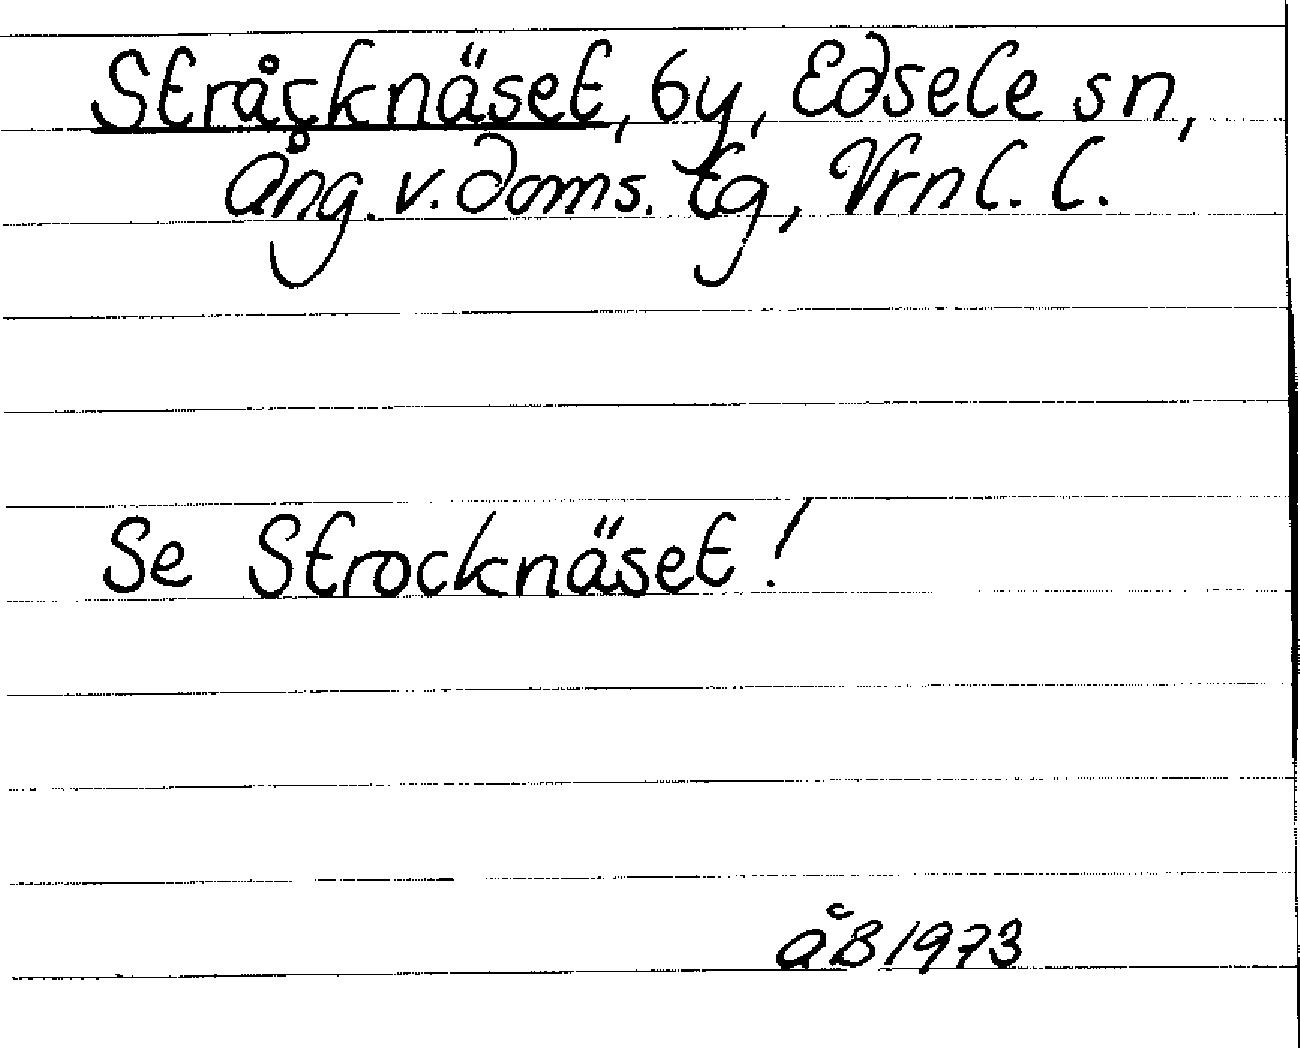 Stråcknäset, by, Edsele sn,
Ång. v. doms. tg, Vrnl. l.
Se Strocknäset!
ÅB 1973